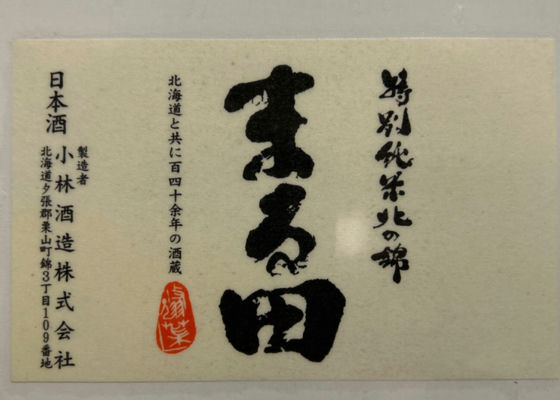 特別純米北の錦
まる田
北海道と共に百四十余年の酒蔵
日本酒
製造者
小林酒造株式会社
北海道夕張郡栗山町錦3丁目109番地